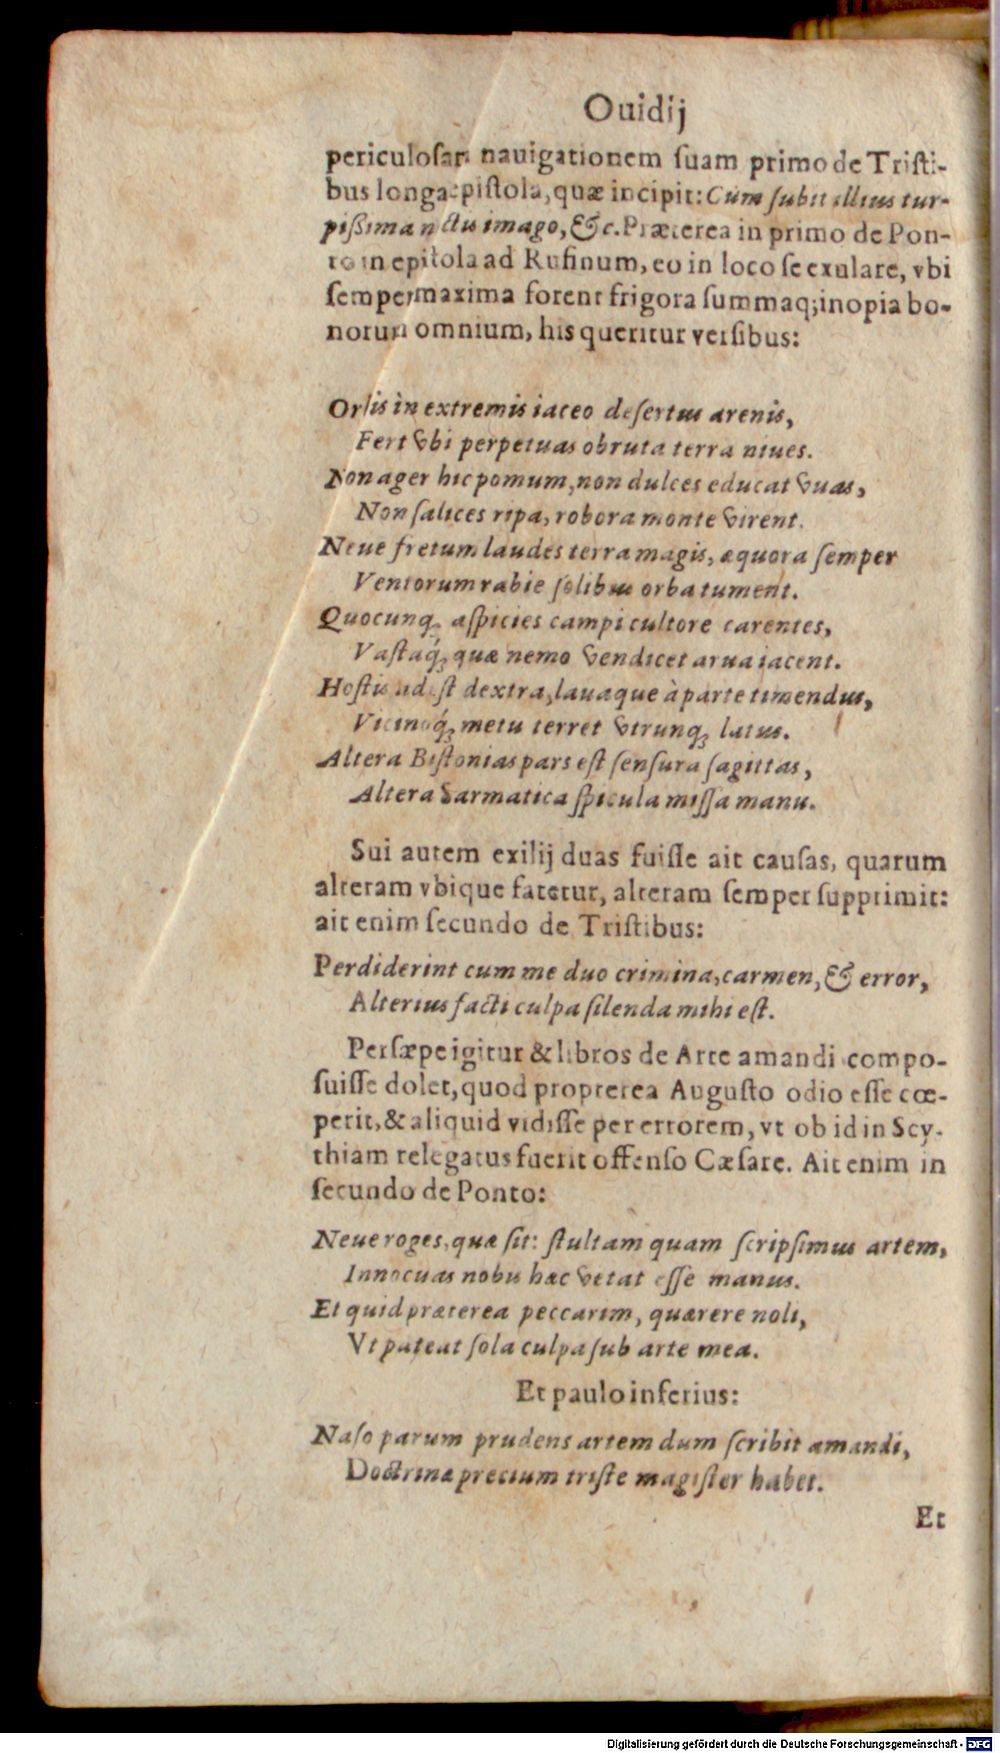 Ouidij
periculosam nauigationem suam primo de Tristi-
bus longa epistola, quæ incipit: Cùm subit illius tur-
pißima noctis imago, &c. Præterea in primo de Pon-
to in epistola ad Rufinum, eo in loco se exulare, vbi
semper maxima forent frigora summaq; inopia bo-
norum omnium, his queritur versibus:
Orbis in extremis iaceo desertus arenis,
Fert vbi perpetuas obruta terra niues.
Non ager hic pomum, non dulces educat vuas,
Non salices ripa, robora monte virent.
Neue fretum laudes terra magis, æquora semper
Ventorum rabie solibus orba tument.
Quocunq; aspicies campi cultore carentes,
Vastaq́; quæ nemo vendicet arua iacent.
Hostis adest dextra, lauaque à parte timendus,
Vicinoq́; metu terret vtrunq; latus.
Altera Bistonias pars est sensura sagittas,
Altera Sarmatica spicula missa manu.
Sui autem exilij duas fuisse ait causas, quarum
alteram vbique fatetur, alteram semper supprimit:
ait enim secundo de Tristibus:
Perdiderint cum me duo crimina, carmen, & error,
Alterius facti culpa silenda mihi est.
Persæpe igitur & libros de Arte amandi compo-
suisse dolet, quod propterea Augusto odio esse cœ-
perit, & aliquid vidisse per errorem, vt ob id in Scy-
thiam relegatus fuerit offenso Cæsare. Ait enim in
secundo de Ponto:
Neue roges, quæ sit: stultam quam scripsimus artem,
Innocuas nobis hæc vetat esse manus.
Et quid præterea peccarim, quærere noli,
Vt pateat sola culpa sub arte mea.
Et paulo inferius:
Naso parum prudens artem dum scribit amandi,
Doctrinæ precium triste magister habet.
Et
Digitalisierung gefördert durch die Deutsche Forschungsgemeinschaft - DFG